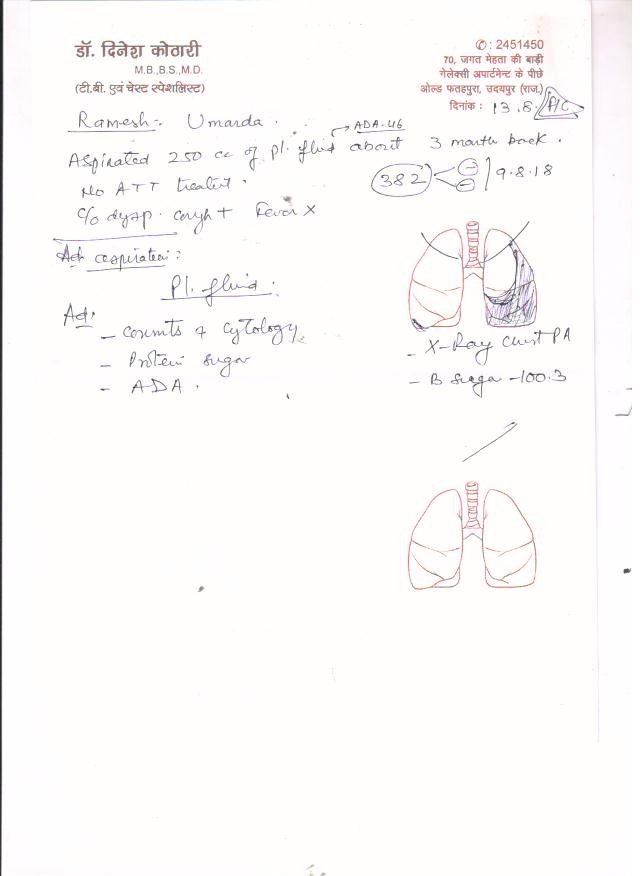 डॉ. दिनेश कोठारी
M.B.,B.S.,M.D.
(टी.बी. एवं चेस्ट स्पेशलिस्ट)
✆: 2451450
70, जगत मेहता की बाड़ी
गेलेक्सी अपार्टमेन्ट के पीछे
ओल्ड फतहपुरा, उदयपुर (राज.)
दिनांक : 13.8. A/C
Ramesh :- Umarda .
→ ADA-46
Aspirated 250 cc of Pl. fluid about 3 month back .
No ATT treatent .
382 - - 9.8.18
c/o dysp. cough + Fever x
Ad aspiration :
Pl. fluid .
Ad:
- counts & cytology
- Protein sugar
- ADA .
- X-Ray Chest PA
- B sugar - 100.3